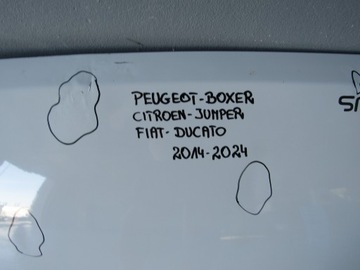 PEUGEOT-BOXER
CITROEN-JUMPER
FIAT-DUCATO
2014-2024